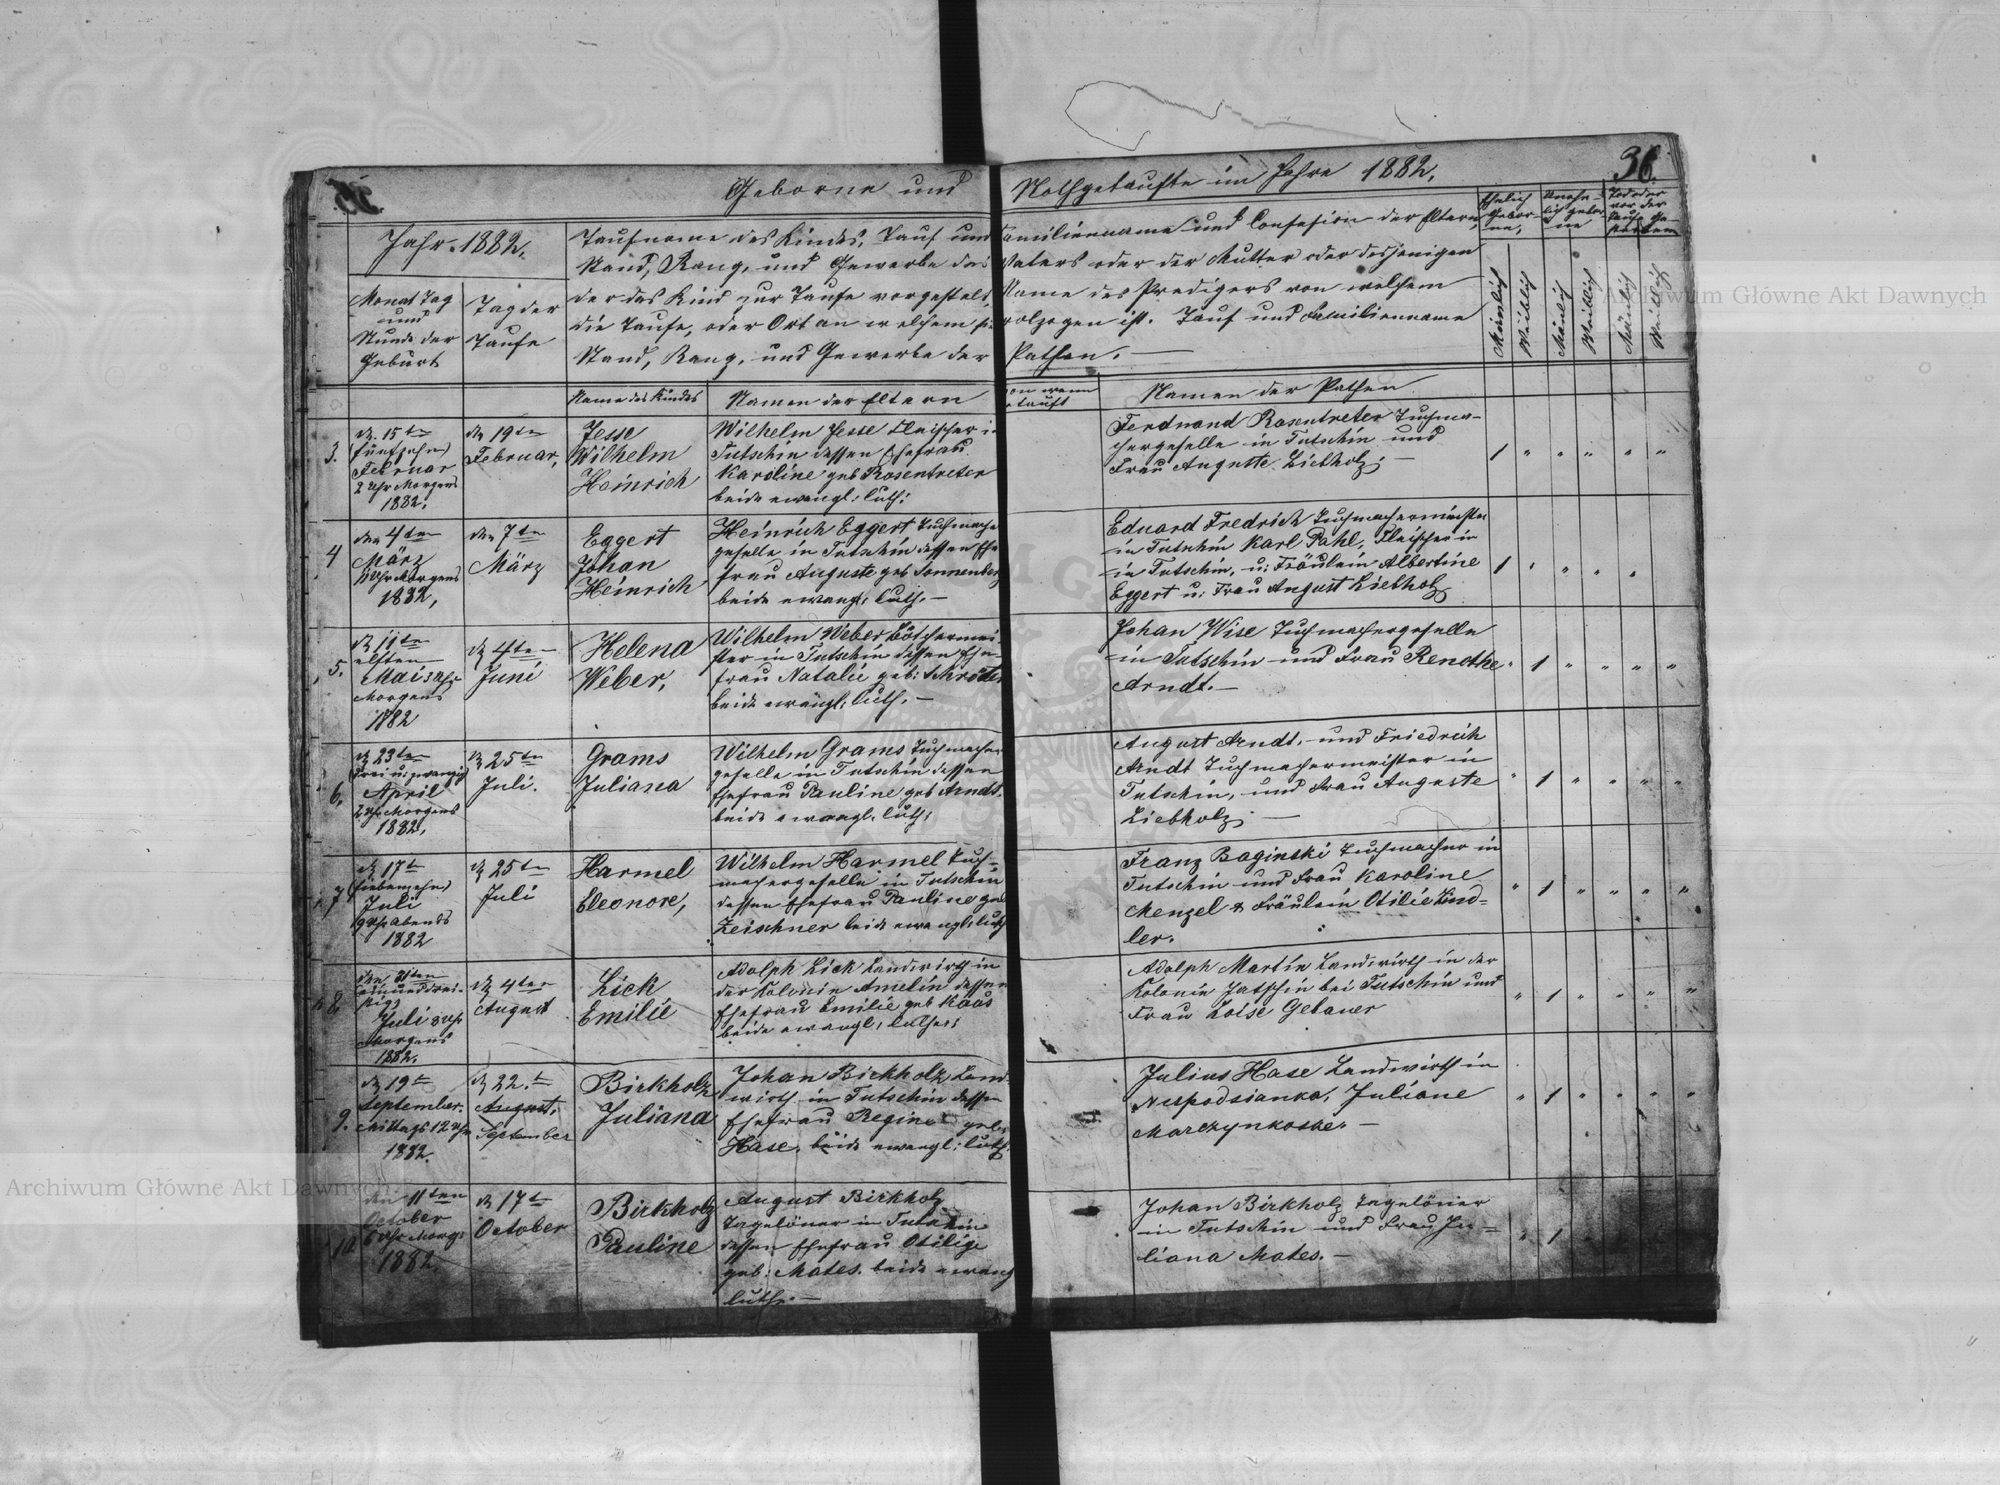 Geborne und Nothgetaufte im Jahre 1882.
36.
Jahr. 1882.
Taufname des Kindes, Tauf und Familienname und Confesion der Eltern,
Stand, Rang, und Gewerbe des Vaters oder der Mutter oder desjenigen
der das Kind zur Taufe vorgestelt, Name des Predigers von welchem
die Taufe, oder Ort an welchem sie volzogen ist. Tauf und Familienname
Stand, Rang, und Gewerbe der Pathen. —
Ehelich
Gebor-
ne,
Unehe-
lich gebor-
ne
Tod oder
vor der
Taufe Ge-
storben
Monat Tag
und
Stunde der
Geburt
Tag der
Taufe
Mänlich
Weiblich
Mänlich
Weiblich
Mänlich
Weiblich
Name des Kindes
Namen der Eltern
von wenn
getauft
Namen der Pathen
3.
d. 15ten
(fünfzehn)
Februar
2 Uhr Morgens
1882.
den 19ten
Februar,
Jesse
Wilhelm
Heinrich
Wilhelm Jesse Fleischer in
Tutschin dessen Ehefrau
Karoline geb Rosentreter
beide ewangl: luth:
Ferdnand Rosentreter Tuchma-
chergeselle in Tutschin und
Frau Auguste Liebholz; —
1 " " " " "
4
den 4ten
März
Uhr Morgens
1882,
den 7ten
März
Eggert
Johan
Heinrich
Heinrich Eggert Tuchmacher
geselle in Tutschin dessen Ehe
frau Auguste geb Sonnenberg
beide ewangl: luth. —
Eduard Fredrich Tuchmachermeister
in Tutschin Karl Pahl, Fleischer in
in Tutschin, u: Fräulein Albertine
Eggert u: Frau August Liebholz
1 " " " "
5.
d. 11ten
elften
Mai 3 Uhr
Morgens
1882
d. 4ten
Juni
Helena
Weber,
Wilhelm Weber Bötchermei-
ster in Tutschin dessen Ehe-
frau Natalie geb: Schröter
beide ewangl: luth. —
Johan Wise Tuchmachergeselle
in Tutschin und Frau Renathe
Arndt. —
" 1 " " " "
6.
d. 23ten
Drei u: zwanzig
April
2 Uhr Morgens
1882,
d. 25ten
Juli.
Grams
Juliana
Wilhelm Grams Tuchmacher
geselle in Tutschin dessen
Ehefrau Pauline geb Arndt.
beide ewangl. luth:
August Arndt, und Friedrich
Arndt Tuchmachermeister in
Tutschin, und Frau Auguste
Liebholz; —
" 1 " " " "
7
d. 17t
(siebenzehn)
Juli
9 Uhr abends
1882
d. 25ten
Juli
Harmel
Eleonore,
Wilhelm Harmel Tuch-
machergeselle in Tutschin
dessen Ehefrau Pauline geb
Zeischner beide ewangl: luth
Franz Baginski Tuchmacher in
Tutschin und Frau Karoline
Menzel & Fräulein Otilie Lind-
ler.
" 1 " " " "
8.
den 31ten
einunddrei-
sigs
Juli 3 Uhr
Morgens
1882.
d. 4ten
August
Lick
Emilie
Adolph Lick Landwirth in
der Kolonie Amelin dessen
Ehefrau Emilie geb Kaus
beide ewangl: luther:
Adolph Martin Landwirth in der
Kolonie Jatschin bei Tutschin und
Frau Loise Gebauer
" 1 " " " "
9.
d. 19ten
September.
Mittags 12 Uhr
1882.
d. 22.t
August.
September
Birkholz
Juliana
Johan Birkholz Land-
wirth in Tutschin dessen
Ehefrau Regine geb.
Hase. beide ewangl: luth.
Julius Hase Landwirth in
Nespodsianka, Juliane
Marczynkoske. —
" 1 " " " "
10
den 11ten
October
6 Uhr Morg:
1882
d. 17t
October
Birkholz
Pauline
August Birkholz
Tagelöner in Tutschin
dessen Ehefrau Otilige
geb: Mates. beide ewang
luth. —
Johan Birkholz Tagelöner
in Tutschin und Frau Ju-
liana Mates. —
" 1
Archiwum Główne Akt Dawnych
Archiwum Główne Akt Dawnych